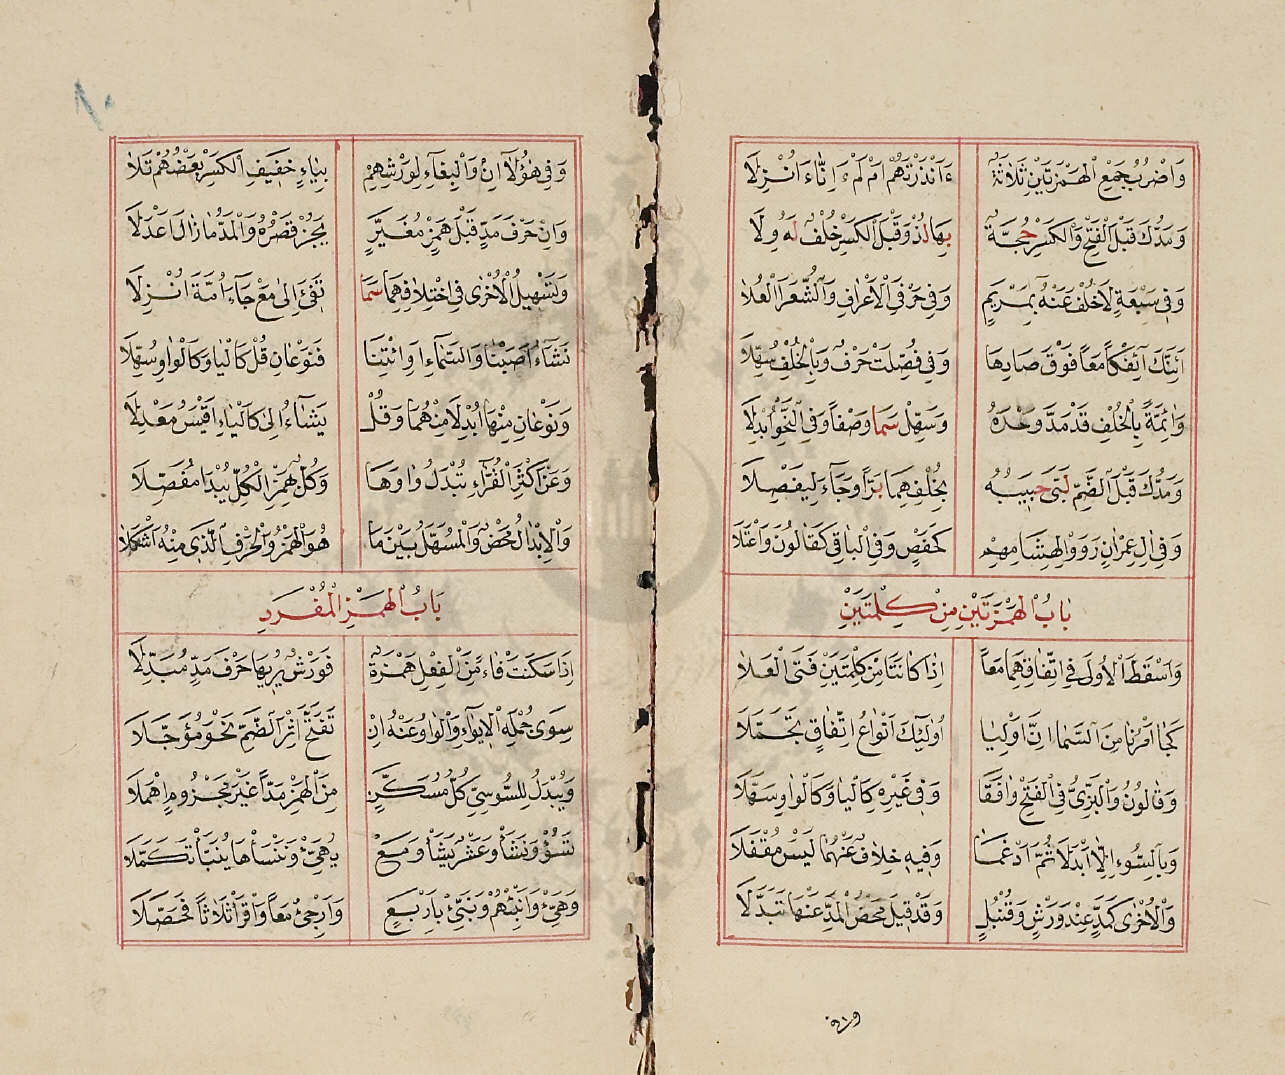 وَاَضْرُبُ جَمْعِ الْهَمْزَتَيْنِ ثَلَاثَةٌ ءَاَنْذَرْتَهُمْ اَمْ لَمْ ءَاِنَّا ءَاُنْزِلَا
وَمَدُّكَ قَبْلَ الْفَتْحِ وَالْكَسْرِ حُجَّةٌ بِهَا لُذْ وَقَبْلَ الْكَسْرِ خُلْفٌ لَهُ وِلَا
وَفِي سَبْعَةٍ لَاخُلْفَ عَنْهُ بِمَرْيَمٍ وَفِي حَرْفَيِ الْاَعْرَافِ وَالشُّعَرَا الْعُلَا
اَئِنَّكَ آئِفْكاً مَعاً فَوْقَ صَادِهَا وَفِي فُصِّلَتْ حَرْفٌ وَبِالْخُلْفِ سُهِّلَا
وَاٰئِمَّةً بِالْخُلْفِ قَدْ مَدَّ وَحْدَهُ وَسَهِّلْ سَمَا وَصْفاً وَفِي النَّحْوِ اُبْدِلَا
وَمَدُّكَ قَبْلَ الضَّمِّ لَبَّى حَبِيبُهُ بِخُلْفِهِمَا بَرّاً وَجَاءَ لِيَفْصِلَا
وَفِي اٰلِ عِمْرَانٍ رَوَوْا لِهِشَامِهِمْ كَحَفْصٍ وَفِي الْبَاقِي كَقَالُونَ وَاعْتَلَا
بَابُ الْهَمْزَتَيْنِ مِنْ كِلْمَتَيْنِ
وَاَسْقَطَ الْاُولَى فِي اتِّفَاقِهِمَا مَعاً اِذَا كَانَتَا مِنْ كِلْمَتَيْنِ فَتَى الْعَلَا
كَجَا اَمْرُنَا مِنَ السَّمَا اِنَّ اَوْلِيَا اُولٰئِكَ اَنْوَاعُ اتِّفَاقٍ تَجَمَّلَا
وَقَالُونُ وَالْبَزِّيُّ فِي الْفَتْحِ وَافَقَا وَفِي غَيْرِهِ كَالْيَا وَكَالْوَاوِ سَهَّلَا
وَبِالسُّوءِ اِلَّا اَبْدَلَا ثُمَّ اَدْغَمَا وَفِيهِ خِلَافٌ عَنْهُمَا لَيْسَ مُقْفَلَا
وَالْاُخْرٰى كَمَدٍّ عِنْدَ وَرْشٍ وَقُنْبُلٍ وَقَدْ قِيلَ مَحْضُ الْمَدِّ عَنْهَا تَبَدَّلَا
وَفِي هٰؤُلَا اِنْ وَالْبِغَاءِ لِوَرْشِهِمْ بِيَاءٍ خَفِيفِ الْكَسْرِ بَعْضُهُمْ تَلَا
وَاِنْ حَرْفُ مَدٍّ قَبْلَ هَمْزٍ مُغَيَّرٍ يَجُزْ قَصْرُهُ وَالْمَدُّ مَازَالَ اَعْدَلَا
وَتَسْهِيلُ الْاُخْرٰى فِي اخْتِلَافِهِمَا سَمَا تَفِيءَ اِلٰى مَعْ جَاءَ اُمَّةَ اُنْزِلَا
نَشَاءُ اَصَبْنَا وَالسَّمَاءِ اَوِ ائْتِنَا فَنَوْعَانِ قُلْ كَالْيَا وَكَالْوَاوِ سُهِّلَا
وَنَوْعَانِ مِنْهَا اُبْدِلَا مِنْهُمَا وَقُلْ يَشَاءُ اِلٰى كَالْيَاءِ اَقْيَسُ مَعْدِلَا
وَعَنْ اَكْثَرِ الْقُرَّاءِ تُبْدَلُ وَاوَهَا وَكُلٌّ بِهَمْزِ الْكُلِّ يُبْدَا مُفَصِّلَا
وَالْاِبْدَالُ مَحْضٌ وَالْمُسَهَّلُ بَيْنَ مَا هُوَ الْهَمْزُ وَالْحَرْفُ الَّذِي مِنْهُ اُشْكِلَا
بَابُ الْهَمْزِ الْمُفْرَدِ
اِذَا سَكَنَتْ فَاءً مِنَ الْفِعْلِ هَمْزَةٌ فَوَرْشٌ يُرِيهَا حَرْفَ مَدٍّ مُبَدَّلَا
سِوَى جُمْلَةِ الْاِيوَاءِ وَالْوَاوُ عَنْهُ اِنْ تَفَتَّحَ اِثْرَ الضَّمِّ نَحْوُ مُؤَجَّلَا
وَيُبْدَلُ لِلسُّوسِيِّ كُلُّ مُسَكَّنٍ مِنَ الْهَمْزِ مَدّاً غَيْرَ مَجْزُومٍ اُهْمِلَا
تَسُؤْ وَنَشَأْ وَعَشْرُ يَشَأْ وَمَعْ يُهَيِّئْ وَنَنْسَأْهَا يُنَبَّأْ تَكَمَّلَا
وَهَيِّئْ وَاَنْبِئْهُمْ وَنَبِّئْ بِاَرْبَعٍ وَاَرْجِئْ مَعاً وَاقْرَأْ ثَلَاثاً فَحَصِّلَا